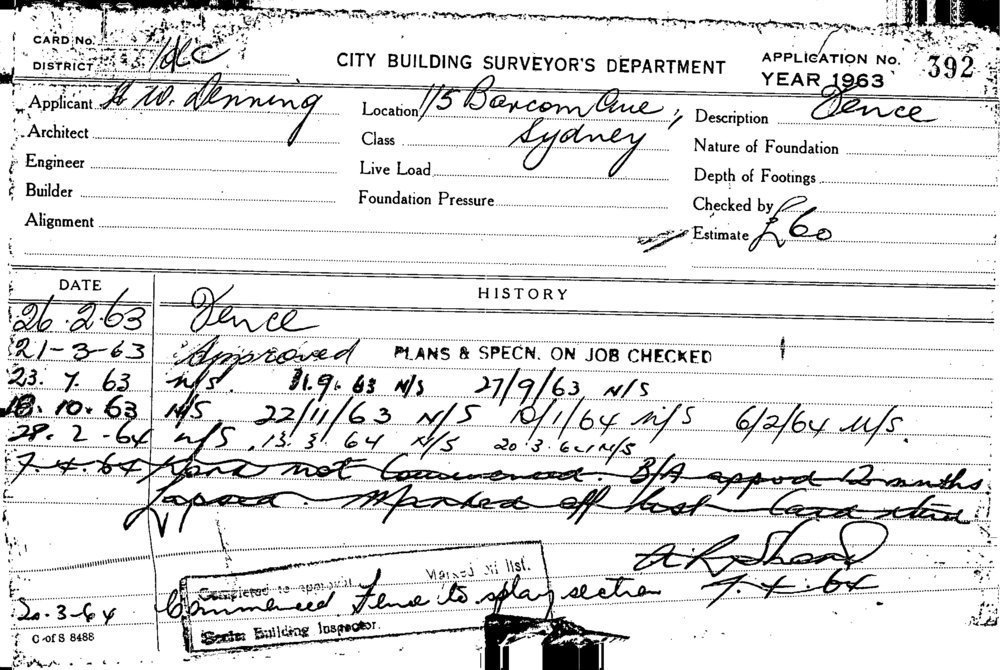 CARD No.
DISTRICT
CITY BUILDING SURVEYOR'S DEPARTMENT
APPLICATION No. 392
YEAR 1963
Applicant H W. Denning
Location 115 Barcom Ave,
Sydney
Description Fence
Architect
Class
Nature of Foundation
Engineer
Live Load
Depth of Footings
Builder
Foundation Pressure
Checked by
Alignment
Estimate £60
DATE HISTORY
26.2.63 Fence
21-3-63 Approved PLANS & SPECN. ON JOB CHECKED
23. 7. 63 N/S. 11.9.63 N/S 27/9/63 N/S
18.10.63 N/S 22/11/63 N/S 10/1/64 N/S 6/2/64 N/S.
28.2-64 N/S. 13.3.64 N/S 20.3.64 N/S
7.4.64 Work not Commenced. B/A appod 12 months
Lapsed. Marked off list
7.4.64
Completed to approval. Marked off list.
20-3-64 Commenced. Fence to splay section
Building Inspector.
C of S 8488